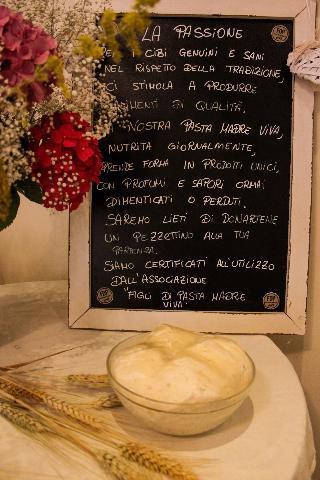 LA PASSIONE
PER I CIBI GENUINI E SANI
NEL RISPETTO DELLA TRADIZIONE,
CI STIMOLA A PRODURRE
ALIMENTI DI QUALITÀ.
NOSTRA PASTA MADRE VIVA,
NUTRITA GIORNALMENTE,
PRENDE FORMA IN PRODOTTI UNICI,
CON PROFUMI E SAPORI ORMAI
DIMENTICATI O PERDUTI.
SAREMO LIETI DI DONARTENE
UN PEZZETTINO ALLA TUA
PARTENZA.
SIAMO CERTIFICATI ALL'UTILIZZO
DALL'ASSOCIAZIONE
"FIGLI DI PASTA MADRE
VIVA"